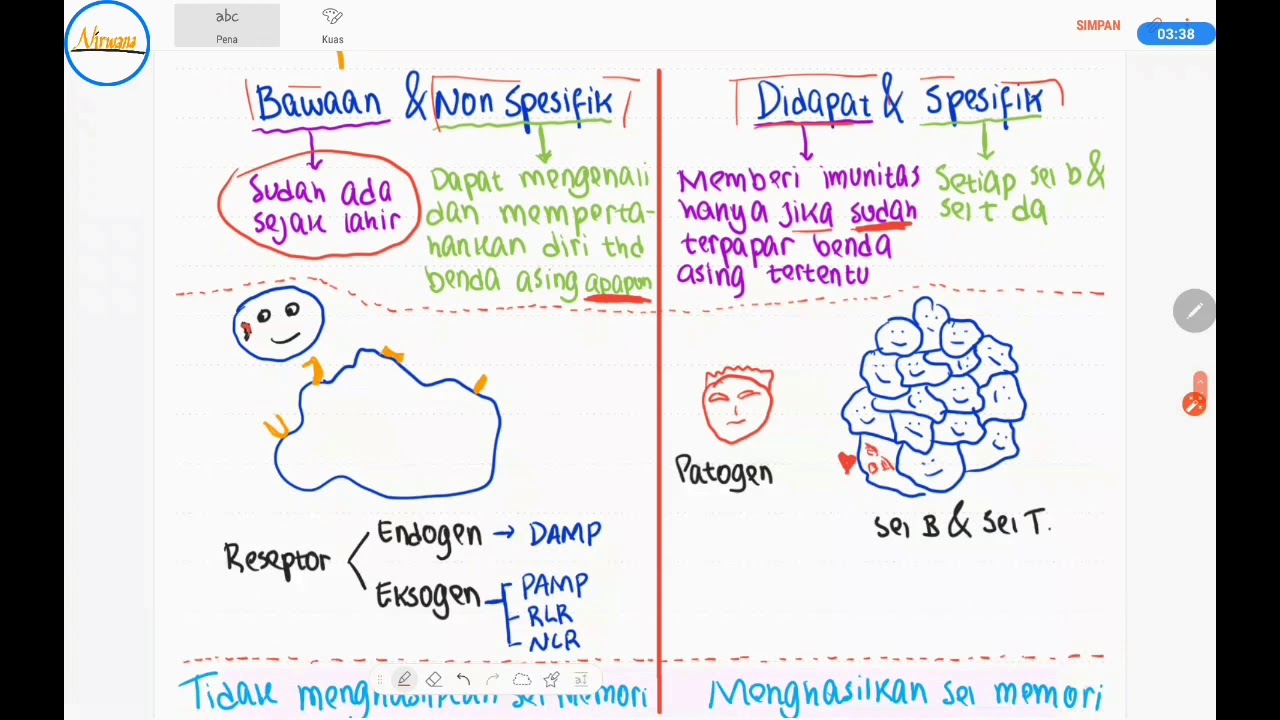 Nirwana
abc
Pena
Kuas
SIMPAN
03:38
Bawaan & Non Spesifik
Sudah ada
sejak lahir
Dapat mengenali
dan memperta-
hankan diri thd
benda asing apapun
Didapat & Spesifik
Memberi imunitas
hanya jika sudah
terpapar benda
asing tertentu
Setiap sel b &
sel t da
Patogen
Sel B & Sel T.
Reseptor
Endogen → DAMP
Eksogen
PAMP
RLR
NLR
Tidak menghasilkan sel memori
Menghasilkan sel memori